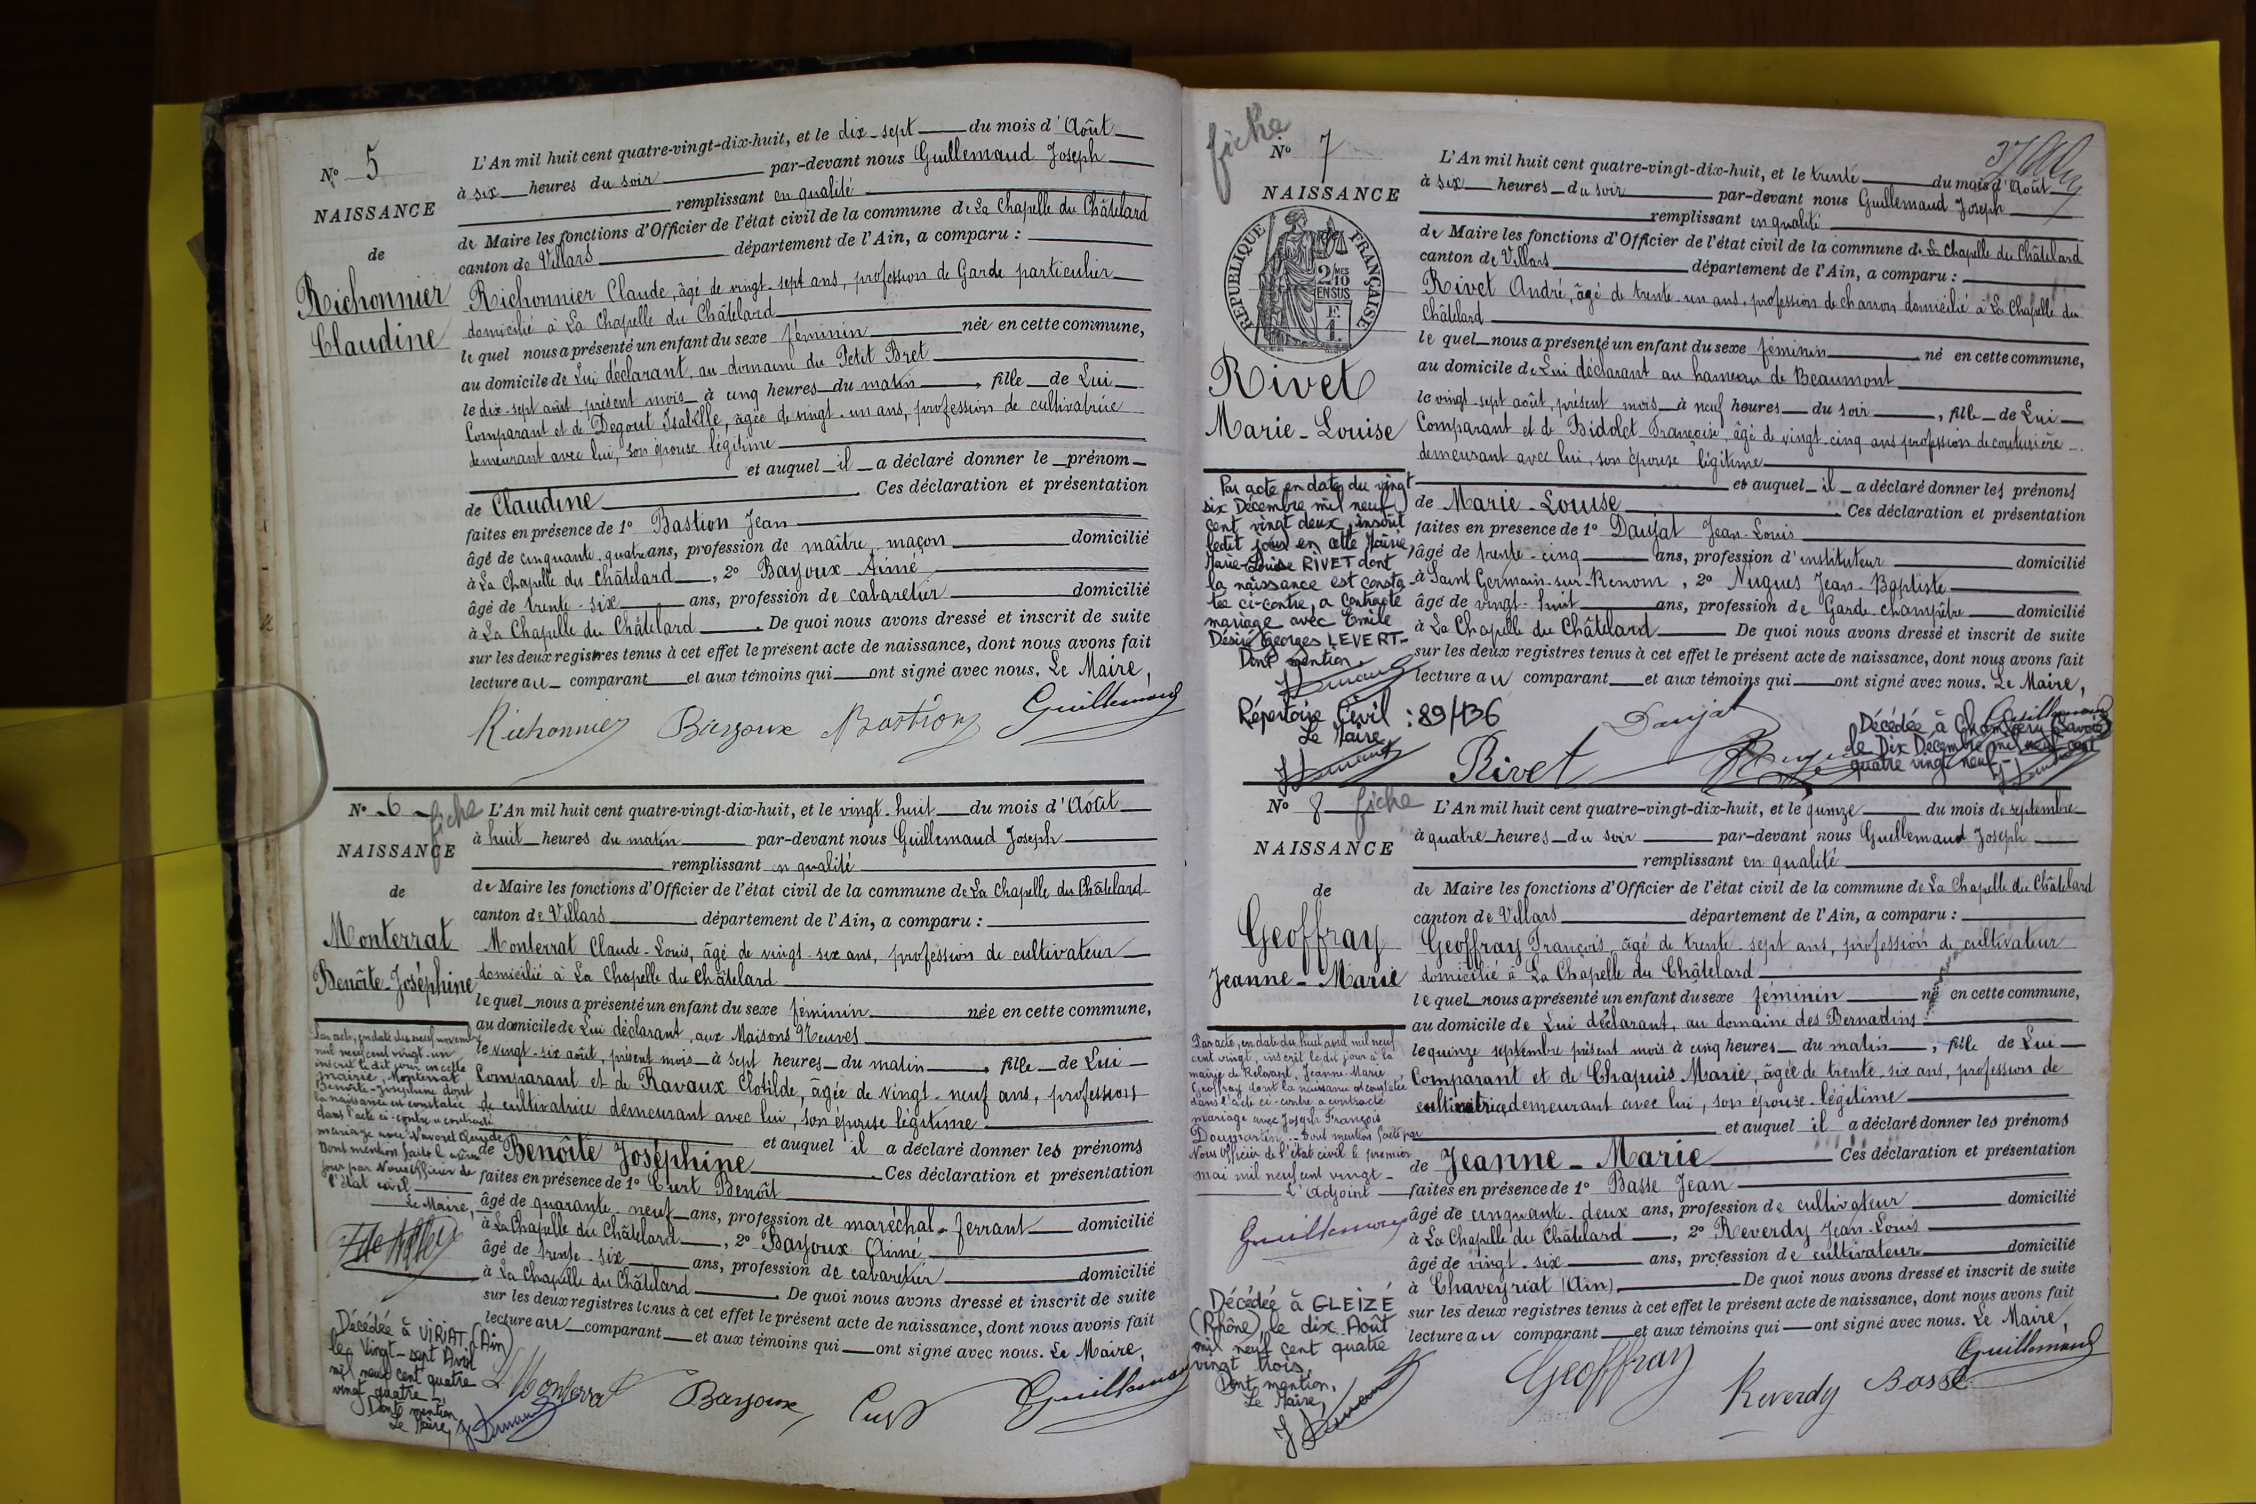 N° 5
NAISSANCE
de
Richonnier
Claudine
L'An mil huit cent quatre-vingt-dix-huit, et le dix-sept du mois d'Août
à six heures du soir par-devant nous Guillemaud Joseph
remplissant en qualité
de Maire les fonctions d'Officier de l'état civil de la commune de La Chapelle du Châtelard
canton de Villars département de l'Ain, a comparu :
Richonnier Claude, âgé de vingt-sept ans, profession de Garde particulier
domicilié à La Chapelle du Châtelard
le quel nous a présenté un enfant du sexe féminin née en cette commune,
au domicile de Lui déclarant, au domaine du Petit Bret
le dix-sept août présent mois à cinq heures du matin, fille de Lui
Comparant et de Degout Isabelle, âgée de vingt-un ans, profession de cultivatrice
demeurant avec lui, son épouse légitime
et auquel il a déclaré donner le prénom
de Claudine Ces déclaration et présentation
faites en présence de 1° Bastion Jean
âgé de cinquante-quatre ans, profession de maître maçon domicilié
à La Chapelle du Châtelard, 2° Bayoux Aimé
âgé de trente-six ans, profession de cabaretier domicilié
à La Chapelle du Châtelard. De quoi nous avons dressé et inscrit de suite
sur les deux registres tenus à cet effet le présent acte de naissance, dont nous avons fait
lecture au comparant et aux témoins qui ont signé avec nous. Le Maire,
Richonnier Bayoux Bastion Guillemaud
N° 6 fiche
NAISSANCE
de
Monterrat
Benôite-Joséphine
L'An mil huit cent quatre-vingt-dix-huit, et le vingt-huit du mois d'Août
à huit heures du matin par-devant nous Guillemaud Joseph
remplissant en qualité
de Maire les fonctions d'Officier de l'état civil de la commune de La Chapelle du Châtelard
canton de Villars département de l'Ain, a comparu :
Monterrat Claude-Louis, âgé de vingt-six ans, profession de cultivateur
domicilié à La Chapelle du Châtelard
le quel nous a présenté un enfant du sexe féminin née en cette commune,
au domicile de Lui déclarant, aux Maisons Neuves
le vingt-six août, présent mois à sept heures du matin, fille de Lui
Comparant et de Ravaux Clotilde, âgée de vingt-neuf ans, profession
de cultivatrice demeurant avec lui, son épouse légitime
et auquel il a déclaré donner les prénoms
de Benôite Joséphine Ces déclaration et présentation
faites en présence de 1° Curt Benoît
âgé de quarante-neuf ans, profession de maréchal-ferrant domicilié
à La Chapelle du Châtelard, 2° Bayoux Aimé
âgé de trente-six ans, profession de cabaretier domicilié
à La Chapelle du Châtelard. De quoi nous avons dressé et inscrit de suite
sur les deux registres tenus à cet effet le présent acte de naissance, dont nous avons fait
lecture au comparant et aux témoins qui ont signé avec nous. Le Maire,
Monterrat Bayoux Curt Guillemaud
Par acte, en date du neuf novembre
mil neuf cent vingt-un
inscrit le dit jour en cette
mairie, Monterrat
Benôite-Joséphine dont
la naissance est constatée
dans l'acte ci-contre a contracté
mariage avec Navoret Claude
Dont mention faite le même
jour par Nous officier de
l'état civil
Le Maire,
Décédée à VIRIAT (Ain)
le Vingt-sept Avril
mil neuf cent quatre
vingt quatre
Dont mention
Le Maire,
fiche
N° 7
NAISSANCE
RÉPUBLIQUE FRANÇAISE
2/10 MES
EN SUS
Rivet
Marie-Louise
L'An mil huit cent quatre-vingt-dix-huit, et le trente du mois d'Août
à six heures du soir par-devant nous Guillemaud Joseph
remplissant en qualité
de Maire les fonctions d'Officier de l'état civil de la commune de La Chapelle du Châtelard
canton de Villars département de l'Ain, a comparu :
Rivet André, âgé de trente-un ans, profession de charron domicilié à La Chapelle du
Châtelard
le quel nous a présenté un enfant du sexe féminin né en cette commune,
au domicile de Lui déclarant au hameau de Beaumont
le vingt-sept août, présent mois à neuf heures du soir, fille de Lui
Comparant et de Bidolet Françoise, âgé de vingt-cinq ans profession de couturière
demeurant avec lui, son épouse légitime
et auquel il a déclaré donner les prénoms
de Marie-Louise Ces déclaration et présentation
faites en présence de 1° Daujat Jean-Louis
âgé de trente-cinq ans, profession d'instituteur domicilié
à Saint Germain-sur-Renom, 2° Nugues Jean-Baptiste
âgé de vingt-huit ans, profession de Garde-champêtre domicilié
à La Chapelle du Châtelard De quoi nous avons dressé et inscrit de suite
sur les deux registres tenus à cet effet le présent acte de naissance, dont nous avons fait
lecture au comparant et aux témoins qui ont signé avec nous. Le Maire,
Daujat Guillemaud
Rivet
Par acte en date du vingt
six Décembre mil neuf
cent vingt deux, inscrit
ledit jour en cette Mairie,
Marie-Louise RIVET dont
la naissance est consta
tée ci-contre, a contracté
mariage avec Emile
Désiré Georges LEVERT
Dont mention
Répertoire Civil : 89/136
Le Maire
Décédée à Chambéry (Savoie)
le Dix Décembre mil neuf cent
quatre vingt neuf
N° 8 fiche
NAISSANCE
de
Geoffray
Jeanne-Marie
L'An mil huit cent quatre-vingt-dix-huit, et le quinze du mois de septembre
à quatre heures du soir par-devant nous Guillemaud Joseph
remplissant en qualité
de Maire les fonctions d'Officier de l'état civil de la commune de La Chapelle du Châtelard
canton de Villars département de l'Ain, a comparu :
Geoffray François, âgé de trente-sept ans, profession de cultivateur
domicilié à La Chapelle du Châtelard
le quel nous a présenté un enfant du sexe féminin né en cette commune,
au domicile de Lui déclarant, au domaine des Bernadins
le quinze septembre présent mois à cinq heures du matin, fille de Lui
Comparant et de Chapuis Marie, âgée de trente-six ans, profession de
cultivatrice demeurant avec lui, son épouse légitime
et auquel il a déclaré donner les prénoms
de Jeanne-Marie Ces déclaration et présentation
faites en présence de 1° Basse Jean
âgé de cinquante-deux ans, profession de cultivateur domicilié
à La Chapelle du Châtelard, 2° Reverdy Jean-Louis
âgé de vingt-six ans, profession de cultivateur domicilié
à Chaveyriat (Ain) De quoi nous avons dressé et inscrit de suite
sur les deux registres tenus à cet effet le présent acte de naissance, dont nous avons fait
lecture au comparant et aux témoins qui ont signé avec nous. Le Maire,
Geoffray Reverdy Basse Guillemaud
Par acte, en date du huit avril mil neuf
cent vingt, inscrit le dit jour à la
mairie de Relevant, Jeanne-Marie
Geoffray dont la naissance est constatée
dans l'acte ci-contre a contracté
mariage avec Joseph François
Doumartin. Dont mention faite par
Nous officier de l'état civil le premier
mai mil neuf cent vingt
L'Adjoint
Guillemaud
Décédée à GLEIZÉ
(Rhône) le dix Août
mil neuf cent quatre
vingt trois
Dont mention,
Le Maire,